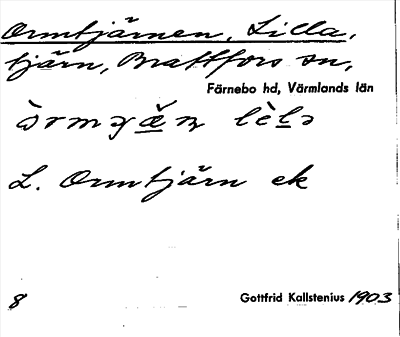 Ormtjärnen, Lilla,
tjärn, Brattfors sn,
Färnebo hd, Värmlands län
L. Ormtjärn ek
8
Gottfrid Kallstenius 1903